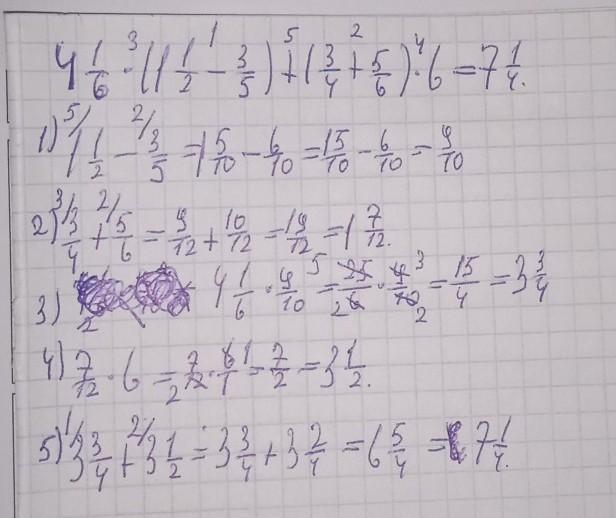 4 1/6 · (1 1/2 - 3/5) + (3/4 + 5/6) · 6 = 7 1/4.
1) 1 1/2 - 3/5 = 1 5/10 - 6/10 = 15/10 - 6/10 = 9/10
2) 3/4 + 5/6 = 9/12 + 10/12 = 19/12 = 1 7/12.
3) 4 1/6 · 9/10 = 25/6 · 9/10 = 15/4 = 3 3/4
4) 7/12 · 6 = 7/12 · 6/1 = 7/2 = 3 1/2.
5) 3 3/4 + 3 1/2 = 3 3/4 + 3 2/4 = 6 5/4 = 7 1/4.